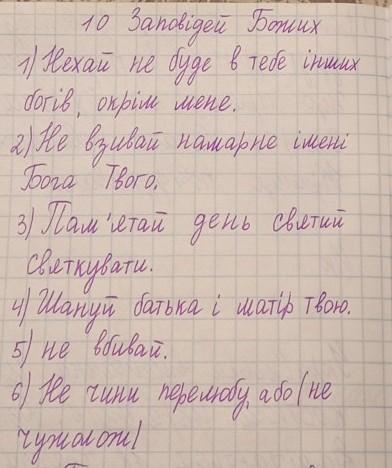 10 Заповідей Божих
1) Нехай не буде в тебе інших
богів, окрім мене.
2) Не взивай намарне імені
Бога Твого.
3) Пам'ятай день святий
святкувати.
4) Шануй батька і матір твою.
5) не вбивай.
6) Не чини перелюбу, або (не
чужолож)